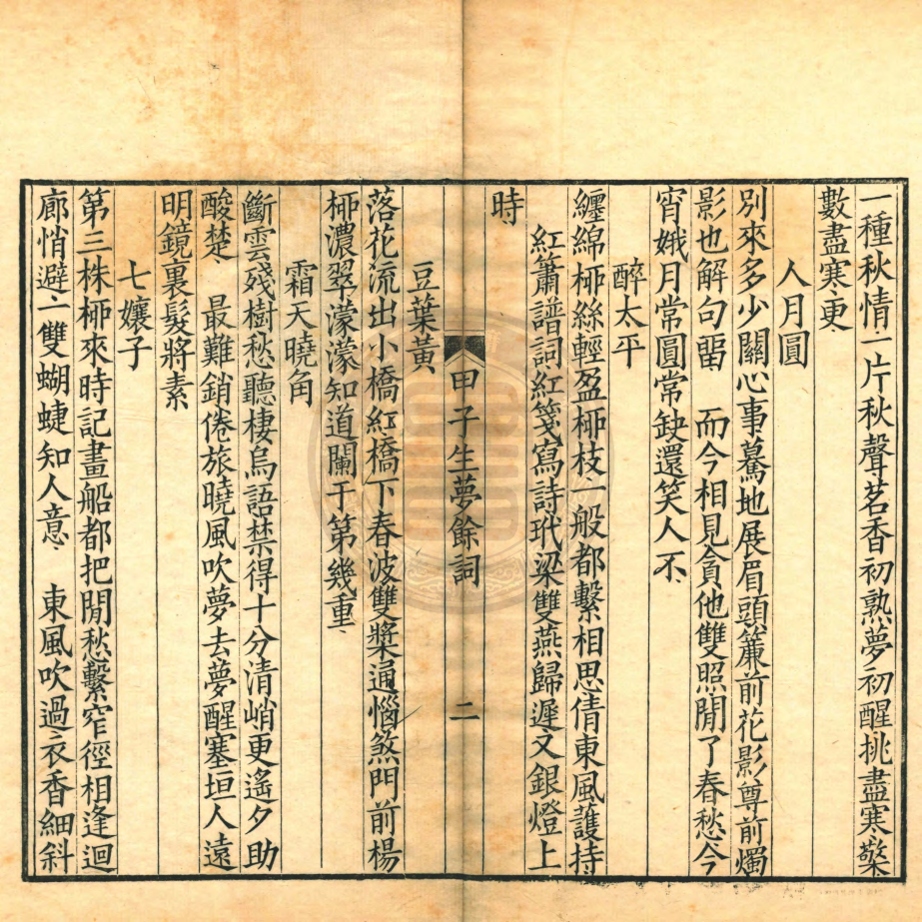 一種秋情一片秋聲茗香初熟夢初醒挑盡寒檠
數盡寒更
人月圓
別來多少關心事驀地展眉頭簾前花影尊前燭
影也解句畱　而今相見貪他雙照閒了春愁今
宵娥月常圓常缺還笑人不
醉太平
纏綿桺絲輕盈桺枝一般都繫相思倩東風護持
紅簫譜詞紅箋寫詩玳梁雙燕歸遲又銀燈上
時
甲子生夢餘詞　二
豆葉黃
落花流出小橋紅橋下春波雙槳通惱煞門前楊
桺濃翠濛濛知道闌干第幾重
霜天曉角
斷雲殘樹愁聽棲烏語禁得十分清峭更遙夕助
酸楚　最難銷倦旅曉風吹夢去夢醒塞垣人遠
明鏡裏髮將素
七孃子
第三株桺來時記畫船都把閒愁繫窄徑相逢迴
廊悄避一雙蝴蜨知人意　東風吹過衣香細斜